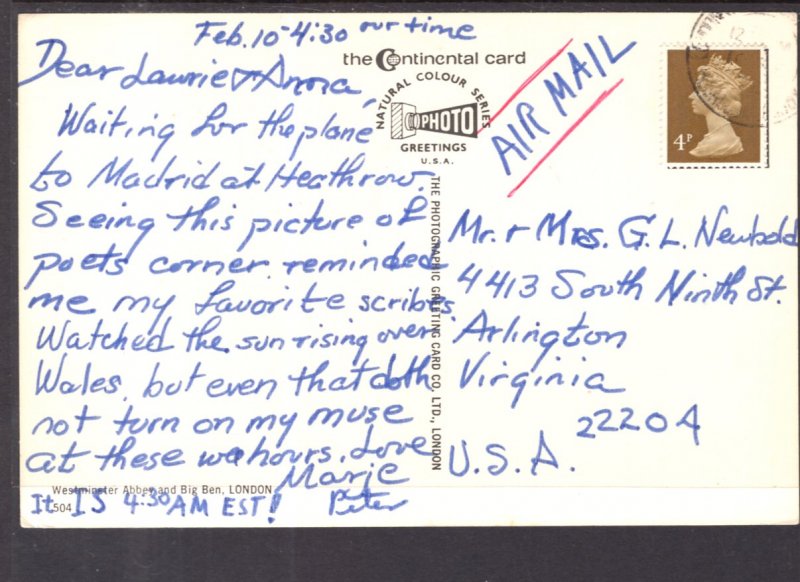 Feb. 10 - 4:30 our time
Dear Laurie & Anora,
Waiting for the plane
to Madrid at Heathrow.
Seeing this picture of
poets corner reminded
me my favorite scribes.
Watched the sun rising over
Wales, but even that doth
not turn on my muse
at these wee hours. Love
Marje
Peter
It IS 4:30 AM EST!
the Continental card
NATURAL COLOUR SERIES
PHOTO
GREETINGS
U.S.A.
THE PHOTOGRAPHIC GREETING CARD CO., LTD., LONDON
Westminster Abbey and Big Ben, LONDON
504
AIR MAIL
4P
Mr. & Mrs. G. L. Newbold
4413 South Ninth St.
Arlington
Virginia
22204
U.S.A.